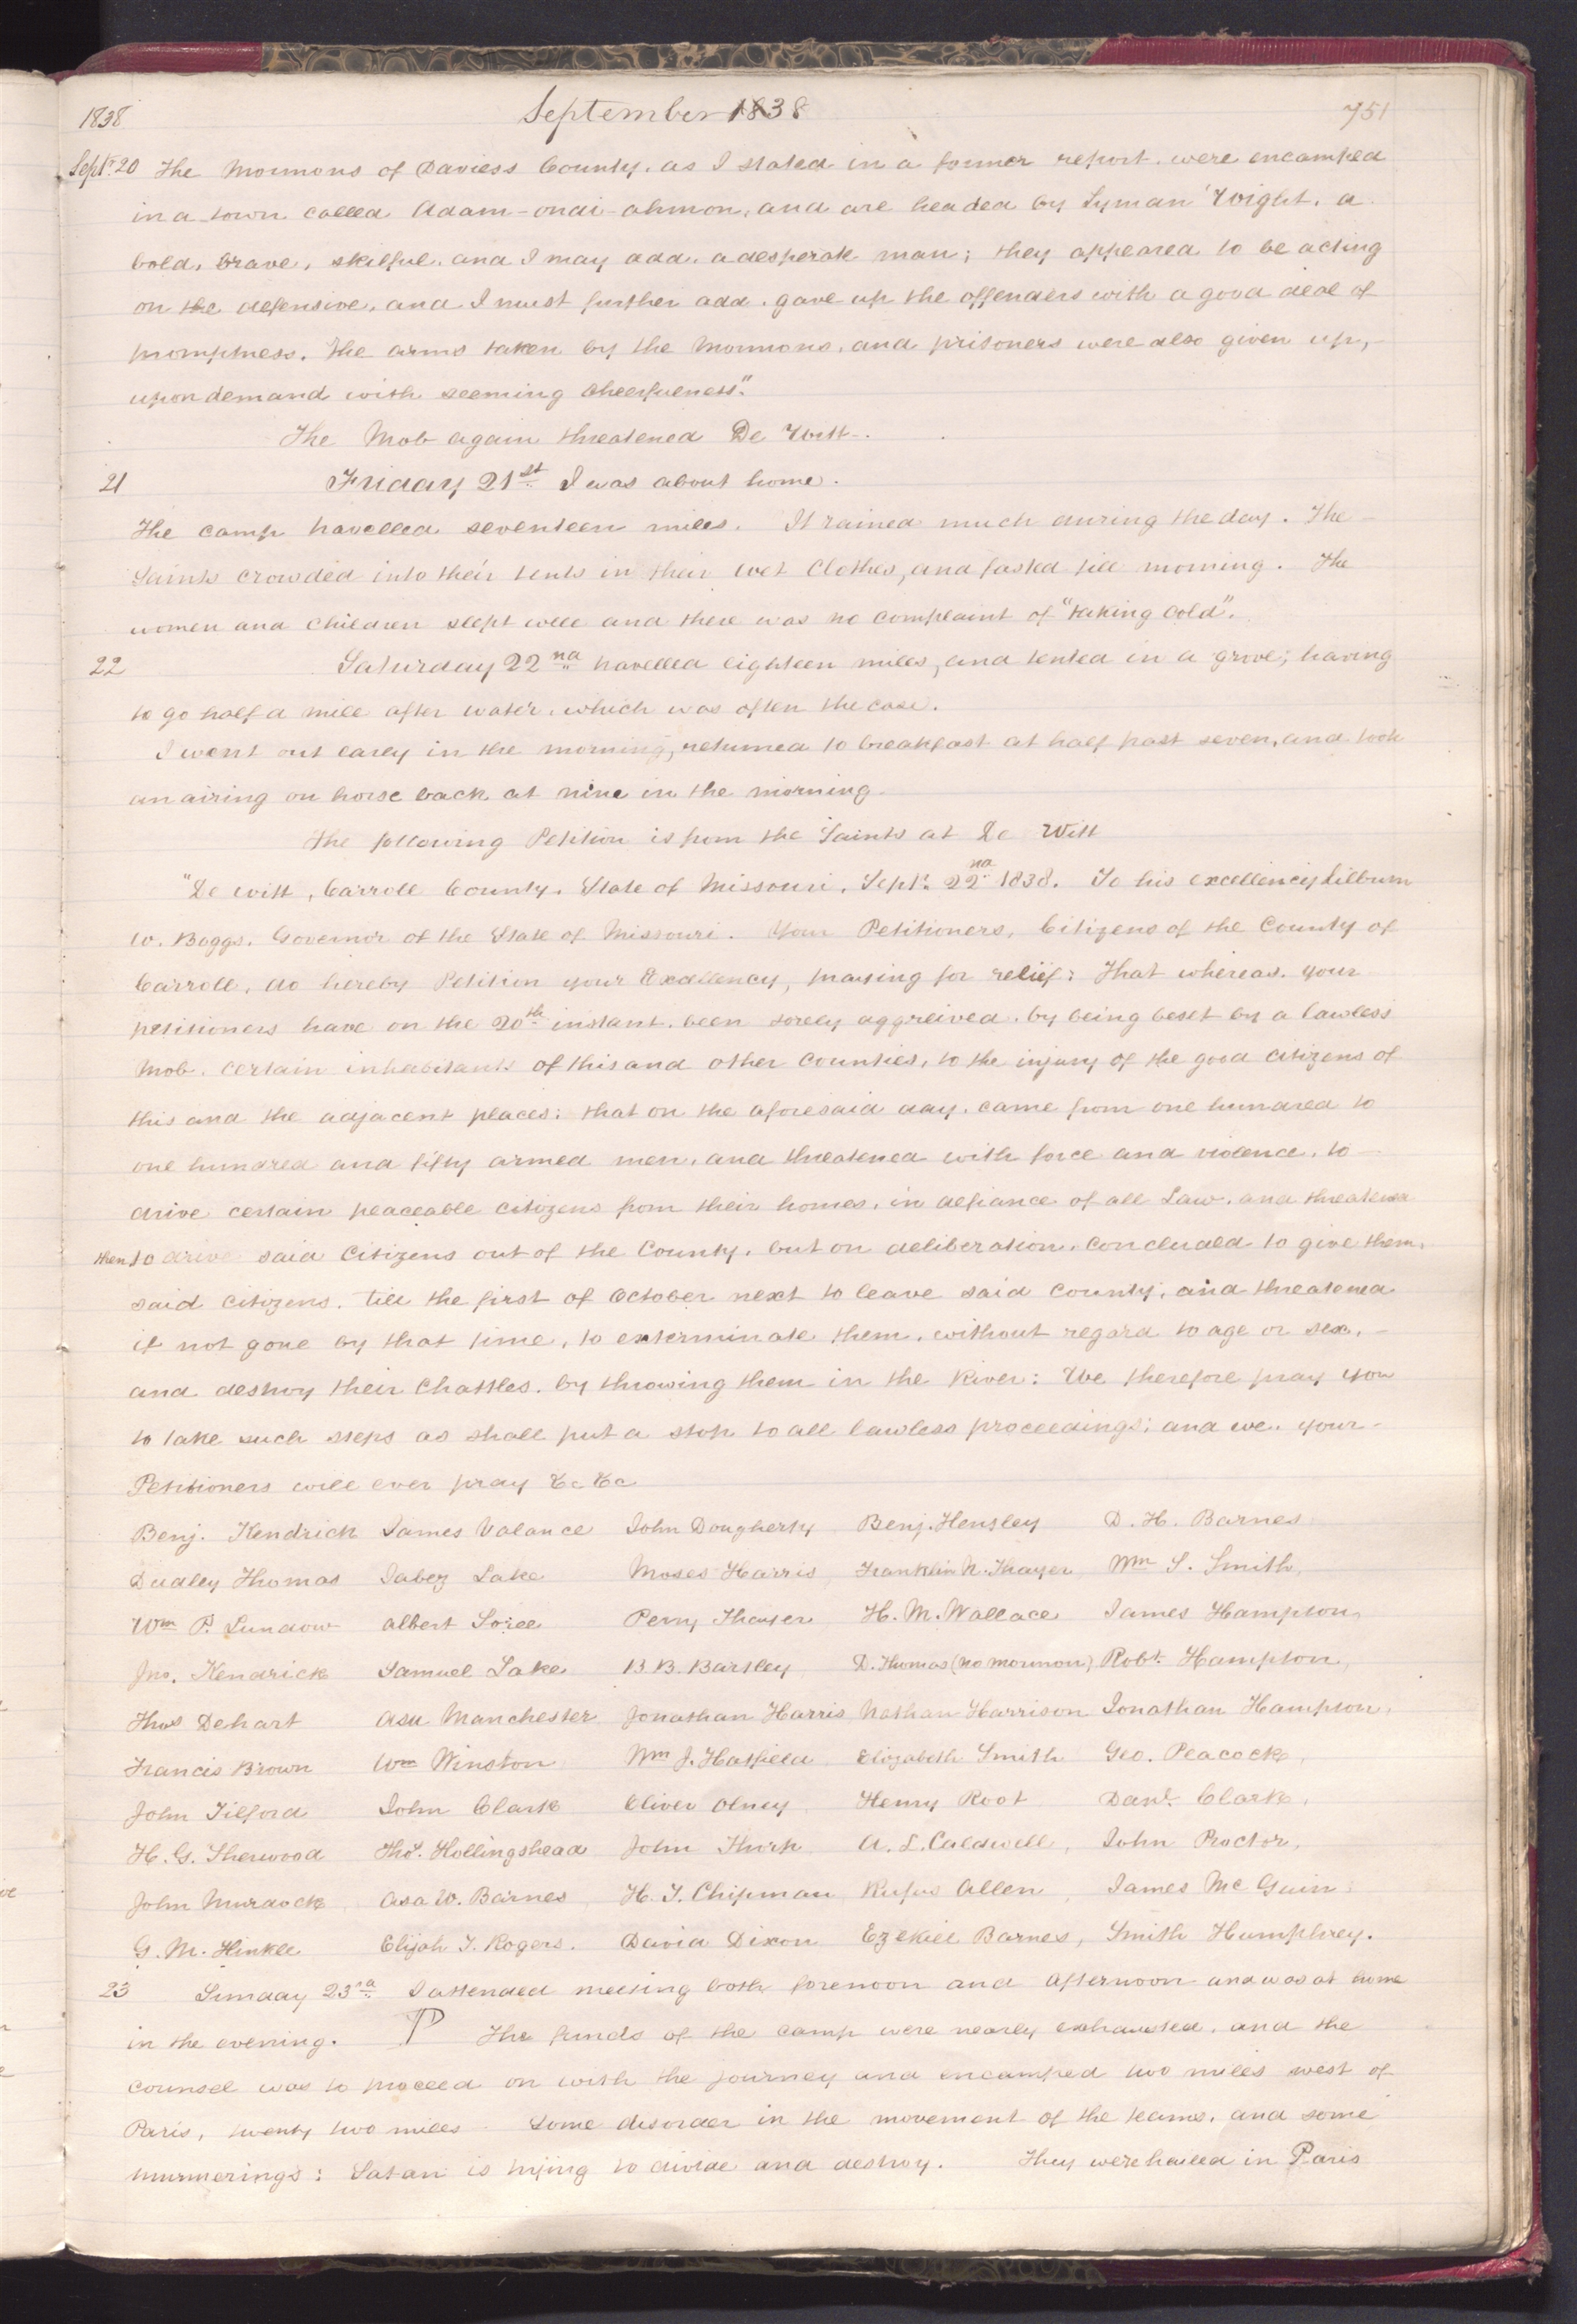 1838 September 1838 751
Sept. 20 The Mormons of Daviess County, as I stated in a former report, were encamped
in a town called Adam-ondi-ahmon, and are headed by Lyman Wight, a
bold, brave, skilful, and I may add, a desperate man; they appeared to be acting
on the defensive, and I must further add, gave up the offenders with a good deal of
promptness. The arms taken by the Mormons, and prisoners were also given up,
upon demand with seeming cheerfulness."
The Mob again threatened De Witt.
21 Friday 21st I was about home.
The camp travelled seventeen miles. It rained much during the day. The
Saints crowded into their tents in their wet Clothes, and fasted till morning. The
women and children slept well and there was no complaint of "taking cold".
22 Saturday 22nd travelled eighteen miles, and tented in a grove; having
to go half a mile after water, which was often the case.
I went out early in the morning, returned to breakfast at half past seven, and took
an airing on horse back at nine in the morning.
The following Petition is from the Saints at De Witt
"De Witt, Carroll County, State of Missouri, Sept. 22nd 1838. To his excellency Lilburn
W. Boggs, Governor of the State of Missouri. Your Petitioners, Citizens of the County of
Carroll, do hereby Petition your Excellency, praying for relief: That whereas, your
petitioners have on the 20th instant, been sorely aggreived, by being beset by a lawless
Mob, certain inhabitants of this and other Counties, to the injury of the good citizens of
this and the adjacent places: that on the aforesaid day, came from one hundred to
one hundred and fifty armed men, and threatened with force and violence, to
drive certain peaceable citizens from their homes, in defiance of all Law, and threatened
then to drive said Citizens out of the County, but on deliberation, concluded to give them,
said citizens, till the first of October next to leave said County, and threatened
if not gone by that time, to exterminate them, without regard to age or sex,
and destroy their Chattles, by throwing them in the River: We therefore pray you
to take such steps as shall put a stop to all lawless proceedings; and we, your
Petitioners will ever pray &c &c
Benj. Kendrick James Valance John Dougherty Benj. Hensley D. H. Barnes
Dudley Thomas Jabez Lake Moses Harris, Franklin N. Thayer, Wm S. Smith,
Wm P. Lundow Albert Loree Perry Thayer, H. M. Wallace James Hampton,
Jno. Kendrick Samuel Lake B. B. Bartley D. Thomas (no mormon), Robt. Hampton,
Thos Dehart Asa Manchester Jonathan Harris Nathan Harrison Jonathan Hampton,
Francis Brown Wm Winston Wm J. Hatfield Elizabeth Smith Geo. Peacock,
John Tilford John Clark Oliver Olney Henry Root Danl. Clark,
H. G. Sherwood Thos. Hollingshead John Thorp A. L. Caldwell, John Proctor,
John Murdock, Asa W. Barnes, H. T. Chipman Rufus Allen, James Mc Guin
G. M. Hinkle Elijah T. Rogers. David Dixon Ezekiel Barnes, Smith Humphrey.
23 Sunday 23rd I attended meeting both forenoon and afternoon and was at home
in the evening. ¶ The funds of the camp were nearly exhausted, and the
counsel was to proceed on with the journey and encamped two miles west of
Paris, twenty two miles. Some disorder in the movement of the teams, and some
murmerings: Satan is trying to divide and destroy. They were hailed in Paris